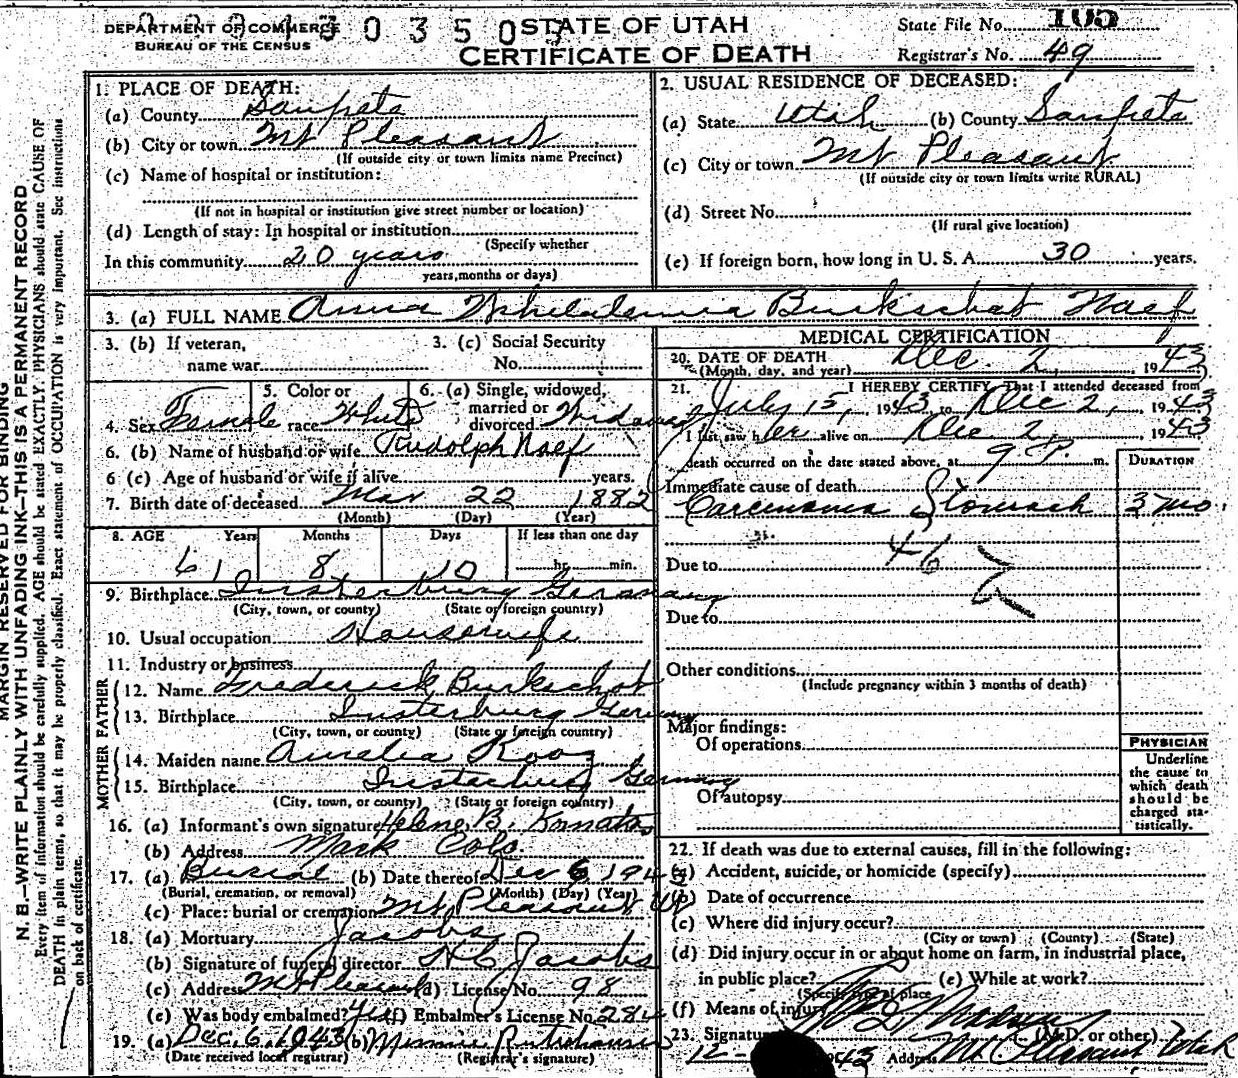 DEPARTMENT OF COMMERCE
BUREAU OF THE CENSUS
STATE OF UTAH
CERTIFICATE OF DEATH
State File No. 105
Registrar's No. 49
MARGIN RESERVED FOR BINDING
N. B.—WRITE PLAINLY WITH UNFADING INK—THIS IS A PERMANENT RECORD
Every item of information should be carefully supplied. AGE should be stated EXACTLY. PHYSICIANS should state CAUSE OF
DEATH in plain terms, so that it may be properly classified. Exact statement of OCCUPATION is very important. See instructions
on back of certificate.
1. PLACE OF DEATH:
(a) County Sanpete
(b) City or town Mt Pleasant
(If outside city or town limits name Precinct)
(c) Name of hospital or institution:
(If not in hospital or institution give street number or location)
(d) Length of stay: In hospital or institution
(Specify whether
In this community 20 years
years, months or days)
2. USUAL RESIDENCE OF DECEASED:
(a) State Utah (b) County Sanpete
(c) City or town Mt Pleasant
(If outside city or town limits write RURAL)
(d) Street No.
(If rural give location)
(e) If foreign born, how long in U. S. A. 30 years.
3. (a) FULL NAME Anna Burkschat Naef
3. (b) If veteran,
name war
3. (c) Social Security
No.
4. Sex Female
5. Color or
race White
6. (a) Single, widowed,
married or
divorced Widowed
6. (b) Name of husband or wife Rudolph Naef
6 (c) Age of husband or wife if alive years.
7. Birth date of deceased Mar 22 1882
(Month) (Day) (Year)
8. AGE Years Months Days If less than one day
61 8 10 hr. min.
9. Birthplace Insterburg Germany
(City, town, or county) (State or foreign country)
10. Usual occupation Housewife
11. Industry or business
FATHER
12. Name Frederick Burkschat
13. Birthplace Insterburg Germany
(City, town, or county) (State or foreign country)
MOTHER
14. Maiden name Aurelia
15. Birthplace Insterburg Germany
(City, town, or county) (State or foreign country)
16. (a) Informant's own signature Helene B.
(b) Address Mack Colo.
17. (a) Burial (b) Date thereof Dec 6 1943
(Burial, cremation, or removal) (Month) (Day) (Year)
(c) Place: burial or cremation Mt Pleasant Ut
18. (a) Mortuary Jacobs
(b) Signature of funeral director H C Jacobs
(c) Address Mt Pleasant (d) License No. 98
(e) Was body embalmed? Yes (f) Embalmer's License No. 284
19. (a) Dec. 6. 1943 (b) Minnie
(Date received local registrar) (Registrar's signature)
MEDICAL CERTIFICATION
20. DATE OF DEATH Dec. 2, 1943
(Month, day, and year)
21. I HEREBY CERTIFY, That I attended deceased from
July 15, 1943, to Dec 2, 1943
I last saw her alive on Dec 2, 1943
death occurred on the date stated above, at 9 P. m.
DURATION
Immediate cause of death
Carcinoma Stomach 3 mo.
46
Due to
Due to
Other conditions
(Include pregnancy within 3 months of death)
Major findings:
Of operations
Of autopsy
PHYSICIAN
Underline
the cause to
which death
should be
charged sta-
tistically.
22. If death was due to external causes, fill in the following:
(a) Accident, suicide, or homicide (specify)
(b) Date of occurrence
(c) Where did injury occur?
(City or town) (County) (State)
(d) Did injury occur in or about home on farm, in industrial place,
in public place? (e) While at work?
(Specify type of place
(f) Means of injury
23. Signature (M.D. or other)
12- 43 Address Mt Pleasant Utah